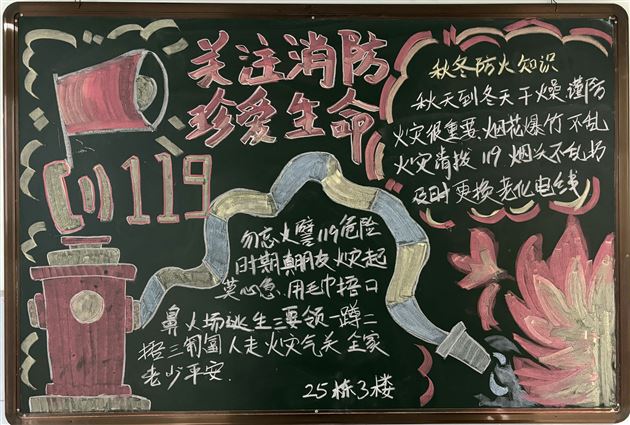 关注消防
珍爱生命
119
秋冬防火知识
秋天到冬天干燥谨防
火灾很重要.烟花爆竹不乱
火灾请拨 119 烟头不乱扔
及时更换老化电线
勿忘火警119危险
时期真朋友火灾起
莫心急.用毛巾捂口
鼻火场逃生三要领一蹲二
捂三匍匐人走火灾气关全家
老少平安.
25栋3楼